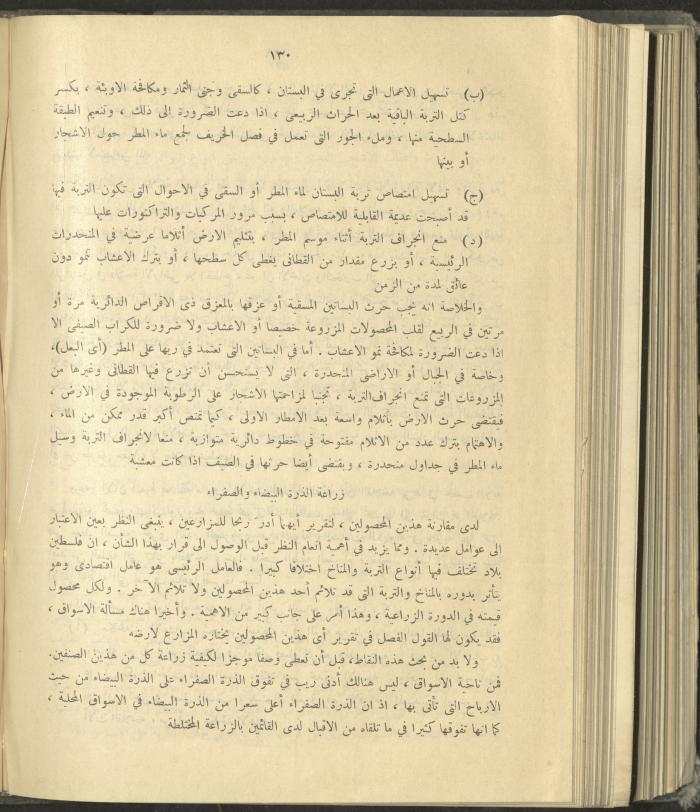 ١٣٠
(ب) تسهيل الاعمال التى تجرى في البستان ، كالسقى وجنى الثمار ومكافحة الاوبئة ، بكسر
كتل التربة الباقية بعد الحراث الربيعى ، اذا دعت الضرورة الى ذلك ، وتنعيم الطبقة
السطحية منها ، وملء الجور التى تعمل في فصل الخريف لجمع ماء المطر حول الاشجار
أو بينها
(ج) تسهيل امتصاص تربة البستان لماء المطر أو السقى في الاحوال التى تكون التربة فيها
قد أصبحت عديمة القابلية للامتصاص ، بسبب مرور المركبات والتراكتورات عليها
(د) منع انجراف التربة أثناء موسم المطر ، بتثليم الارض أثلاما عرضية في المنحدرات
الرئيسية ، أو بزرع مقدار من القطانى يغطى كل سطحها ، أو بترك الاعشاب تنمو دون
عائق لمدة من الزمن
والخلاصة انه يجب حرث البساتين المسقية أو عزقها بالمعزق ذى الاقراص الدائرية مرة أو
مرتين في الربيع لقلب المحصولات المزروعة خصيصا أو الاعشاب ولا ضرورة للكراب الصيفى الا
اذا دعت الضرورة لمكافحة نمو الاعشاب . أما في البساتين التى تعتمد في ريها على المطر (أى البعل)،
وخاصة في الجبال أو الاراضى المنحدرة ، التى لا يستحسن أن تزرع فيها القطانى وغيرها من
المزروعات التى تمنع انجراف التربة ، تجنبا لمزاحمتها الاشجار على الرطوبة الموجودة في الارض ،
فيقتضى حرث الارض بأتلام واسعة بعد الامطار الاولى ، كيما تمتص أكبر قدر ممكن من الماء ،
والاهتمام بترك عدد من الاتلام مفتوحة في خطوط دائرية متوازية ، منعا لانجراف التربة وسيل
ماء المطر في جداول منحدرة ، ويقتضى أيضا حرثها في الصيف اذا كانت معشبة
زراعة الذرة البيضاء والصفراء
لدى مقارنة هذين المحصولين ، لتقرير أيهما أدر ربحا للمزارعين ، ينبغى النظر بعين الاعتبار
الى عوامل عديدة . ومما يزيد في أهمية انعام النظر قبل الوصول الى قرار بهذا الشأن ، ان فلسطين
بلاد تختلف فيها أنواع التربة والمناخ اختلافا كبيرا . فالعامل الرئيسى هو عامل اقتصادى وهو
يتأثر بدوره بالمناخ والتربة التى قد تلائم أحد هذين المحصولين ولا تلائم الآخر . ولكل محصول
قيمته في الدورة الزراعية ، وهذا أمر على جانب كبير من الاهمية . وأخيرا هناك مسألة الاسواق ،
فقد يكون لها القول الفصل في تقرير أى هذين المحصولين يختاره المزارع لارضه
ولا بد من بحث هذه النقاط، قبل أن نعطى وصفا موجزا لكيفية زراعة كل من هذين الصنفين.
فمن ناحية الاسواق ، ليس هنالك أدنى ريب في تفوق الذرة الصفراء على الذرة البيضاء من حيث
الارباح التى تأتى بها ، اذ ان الذرة الصفراء أعلى سعرا من الذرة البيضاء في الاسواق المحلية ،
كما انها تفوقها كثيرا في ما تلقاه من الاقبال لدى القائمين بالزراعة المختلطة